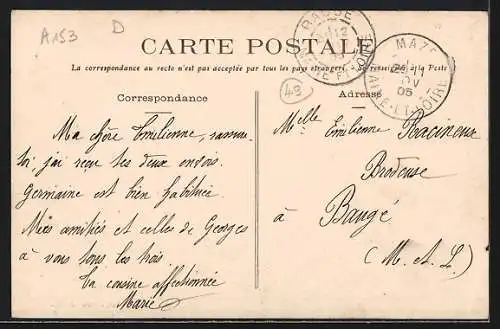 A153 D
CARTE POSTALE
La correspondance au recto n'est pas acceptée par tous les pays étrangers. Se renseigner à la Poste
MAZÉ
05
MAINE-ET-LOIRE
49
Correspondance
Adresse
Ma chère Emilienne, rassure
toi j'ai reçu les deux envois.
Germaine est bien habituée
Mes amitiés et celles de Georges
à vous tous les trois
Ta cousine affectionnée
Marie
Melle Emilienne Racineux
Brodeuse
à Baugé
(M. et L.)